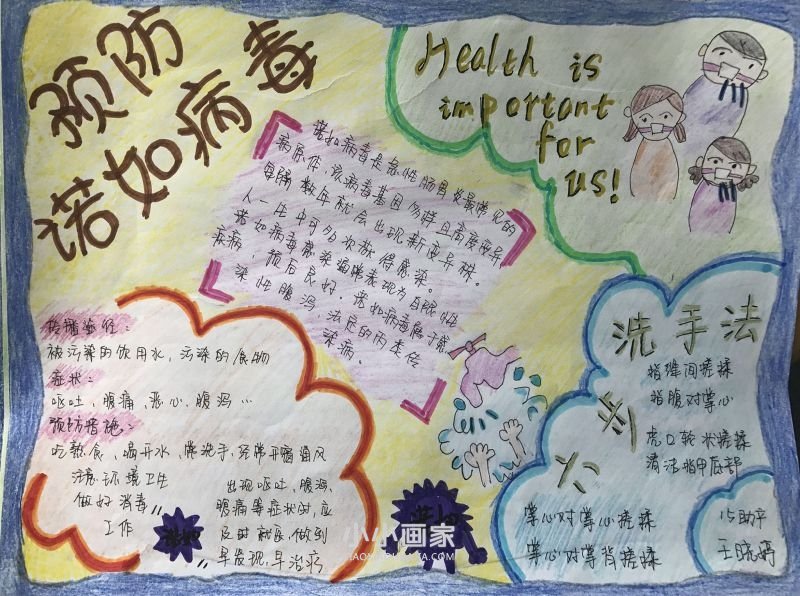 预防
诺如病毒
Health is
important
for
us!
诺如病毒是急性肠胃炎最常见的
病原体,该病毒基因多样且高度变异
每隔数年就会出现新变异株。
人一生中可多次获得感染。
诺如病毒感染通常表现为自限性
疾病,预后良好。诺如病毒属于感
染性腹泻,法定的丙类传
染病。
传播途径:
被污染的饮用水,污染的食物
症状:
呕吐、腹痛、恶心、腹泻…
预防措施:
吃熟食、喝开水、常洗手、经常开窗通风
注意环境卫生
做好消毒
工作
出现呕吐、腹泻、
腹痛等症状时,应
及时就医,做到
早发现,早治疗
诺如
诺如
洗手法
指缝间搓揉
指腹对掌心
虎口轮状搓揉
清洁指甲底部
六步
掌心对掌心搓揉
掌心对掌背搓揉
王晓婷
小小画家